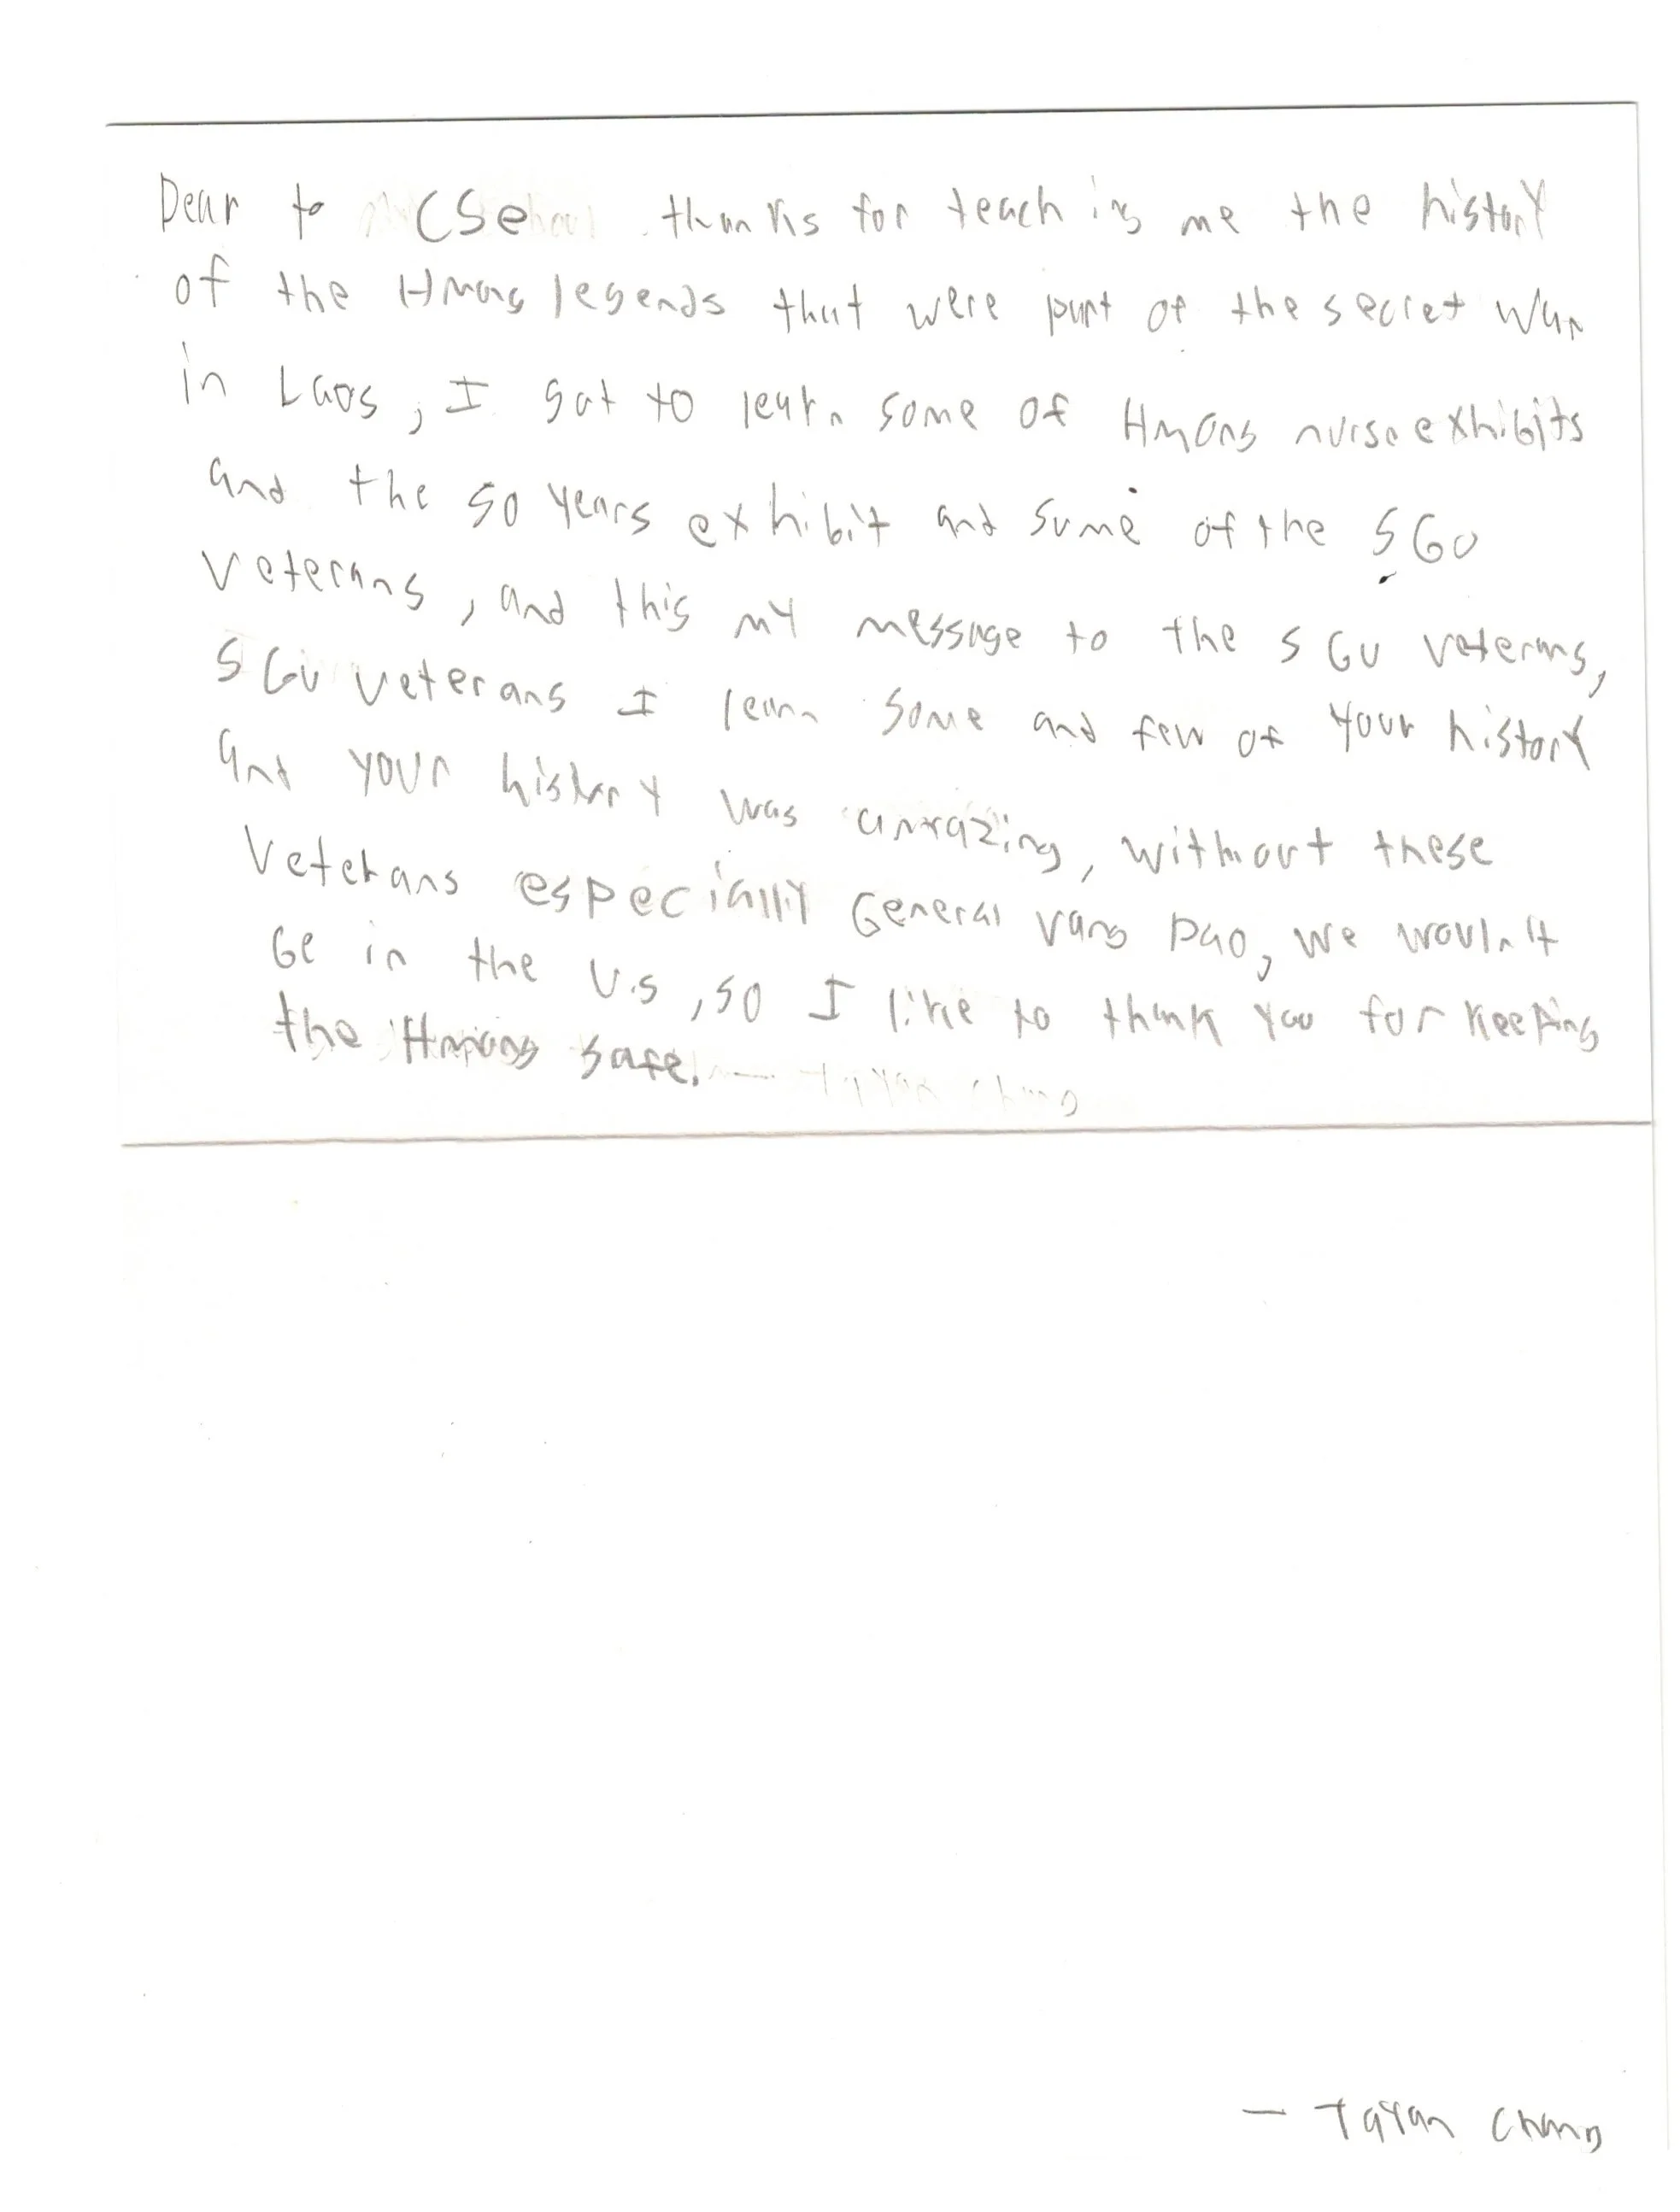 Dear to CSe thanks for teaching me the history
of the Hmong legends that were part of the secret war
in Laos, I got to learn some of Hmong nurse exhibits
and the 50 years exhibit and some of the SGU
veterans, and this my message to the SGU veterans,
SGU veterans I learn some and few of your history
and your history was amazing, without these
Veterans especially General Vang Pao, we wouln't
be in the U.S, so I like to thank you for keeping
the Hmong safe.
— Tayan Chang